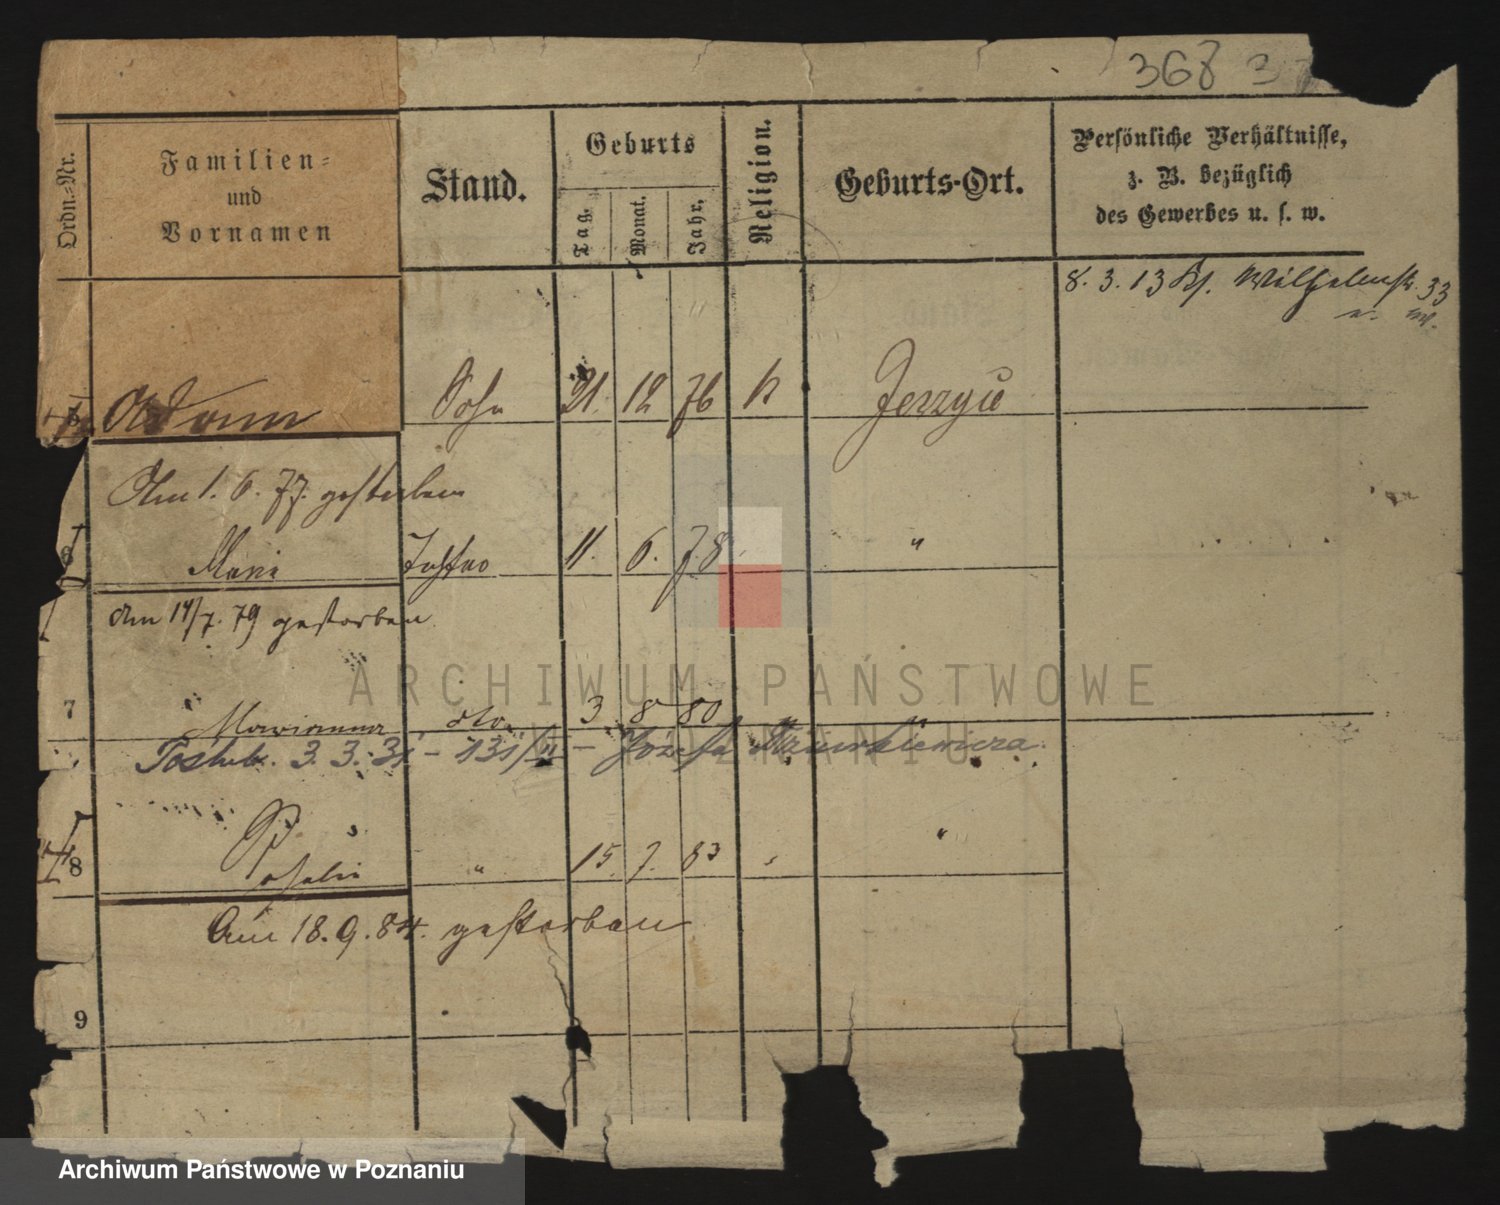 368 3
Ordn.-Nr.
Familien-
und
Vornamen
Stand.
Geburts
Tag.
Monat.
Jahr.
Religion.
Geburts-Ort.
Persönliche Verhältnisse,
z. B. bezüglich
des Gewerbes u. s. w.
8. 3. 13 Wilhelmstr. 33
Adam Sohn 21. 12 76 k Jerzyce
Am 1. 6. 77. gestorben
6 Marie Tochter 11. 6. 78 "
Am 14/7. 79 gestorben
7 Marianna dto. 3 8 80 "
3. 3. 31 - 131/II - Józefa
8 Rosalie " 15. 7. 83 "
Am 18. 9. 84. gestorben
9
ARCHIWUM PAŃSTWOWE
W POZNANIU
Archiwum Państwowe w Poznaniu